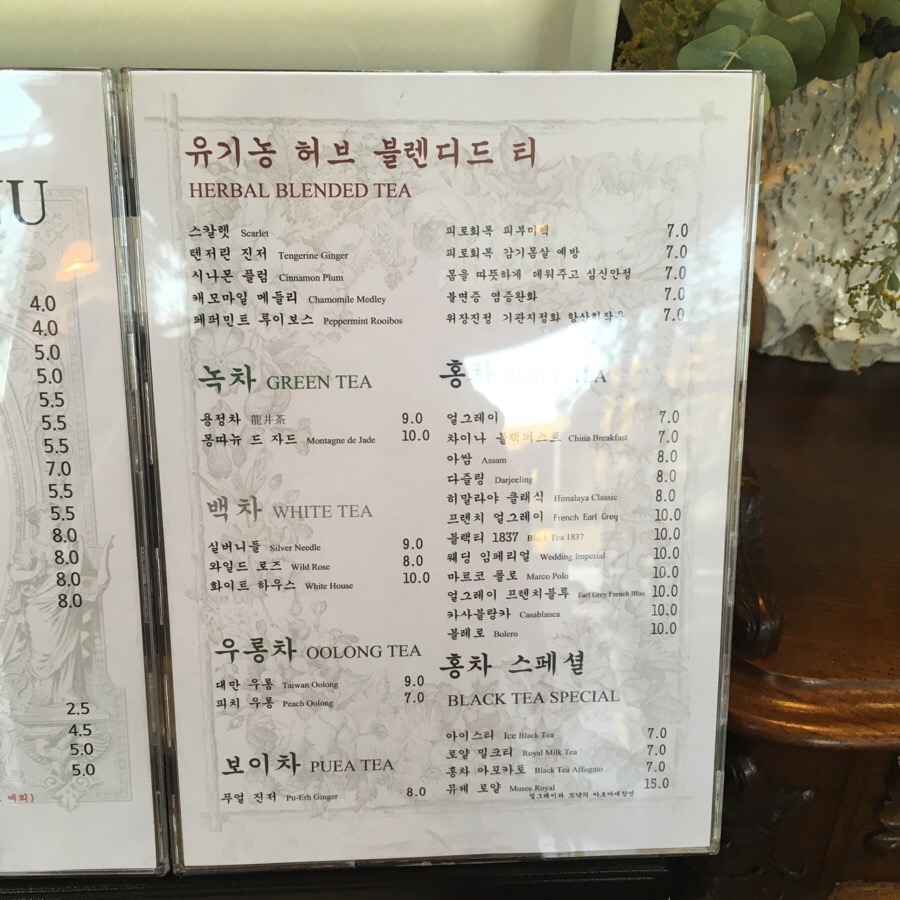 4.0
4.0
5.0
5.0
5.5
5.5
5.5
7.0
5.5
5.5
8.0
8.0
8.0
8.0
2.5
4.5
5.0
5.0
유기농 허브 블렌디드 티
HERBAL BLENDED TEA
스칼렛 Scarlet 피로회복 피부미백 7.0
텐저린 진저 Tengerine Ginger 피로회복 감기몸살 예방 7.0
시나몬 플럼 Cinnamon Plum 몸을 따뜻하게 데워주고 심신안정 7.0
캐모마일 메들리 Chamomile Medley 불면증 염증완화 7.0
페퍼민트 루이보스 Peppermint Rooibos 위장진정 기관지정화 항산화작용 7.0
녹차 GREEN TEA
용정차 龍井茶 9.0
몽따뉴 드 자드 Montagne de Jade 10.0
백차 WHITE TEA
실버니들 Silver Needle 9.0
와일드 로즈 Wild Rose 8.0
화이트 하우스 White House 10.0
우롱차 OOLONG TEA
대만 우롱 Taiwan Oolong 9.0
피치 우롱 Peach Oolong 7.0
보이차 PUEA TEA
푸얼 진저 Pu-Erh Ginger 8.0
홍차 TEA
얼그레이 7.0
차이나 블랙퍼스트 China Breakfast 7.0
아쌈 Assam 8.0
다즐링 Darjeeling 8.0
히말라야 클래식 Himalaya Classic 8.0
프렌치 얼그레이 French Earl Grey 10.0
블랙티 1837 Black Tea 1837 10.0
웨딩 임페리얼 Wedding Imperial 10.0
마르코 폴로 Marco Polo 10.0
얼그레이 프렌치블루 Earl Grey French Blue 10.0
카사블랑카 Casablanca 10.0
볼레로 Bolero 10.0
홍차 스페셜
BLACK TEA SPECIAL
아이스티 Ice Black Tea 7.0
로얄 밀크티 Royal Milk Tea 7.0
홍차 아포카토 Black Tea Affogato 7.0
뮤제 로얄 Musee Royal 15.0
얼그레이와 꼬냑의 아로마대향연